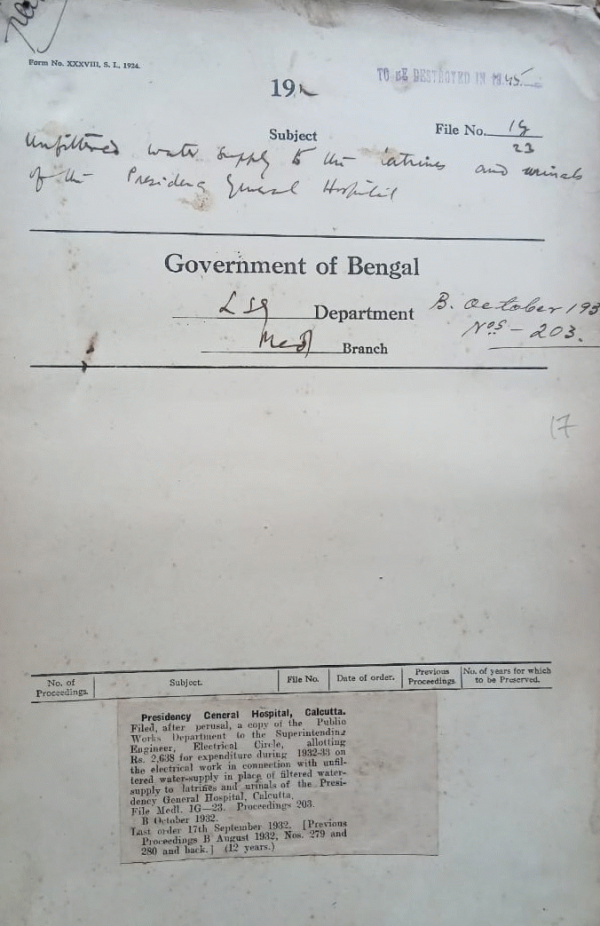 Form No. XXXVIII, S. I., 1924.
TO BE DESTROYED IN 1945
19
Subject
File No. 1G
23
Unfiltered water supply to the latrines and urinals
of the Presidency General Hospital
Government of Bengal
LSG Department
B. October 193
Nos - 203.
Medl Branch
17
No. of Proceedings.
Subject.
File No.
Date of order.
Previous Proceedings
No. of years for which to be Preserved.
Presidency General Hospital, Calcutta.
Filed, after perusal, a copy of the Public
Works Department to the Superintending
Engineer, Electrical Circle, allotting
Rs. 2,638 for expenditure during 1932-33 on
the electrical work in connection with unfil-
tered water-supply in place of filtered water-
supply to latrines and urinals of the Presi-
dency General Hospital, Calcutta.
File Medl. 1G—23. Proceedings 203.
B October 1932.
Last order 17th September 1932. [Previous
Proceedings B August 1932, Nos. 279 and
280 and back.] (12 years.)